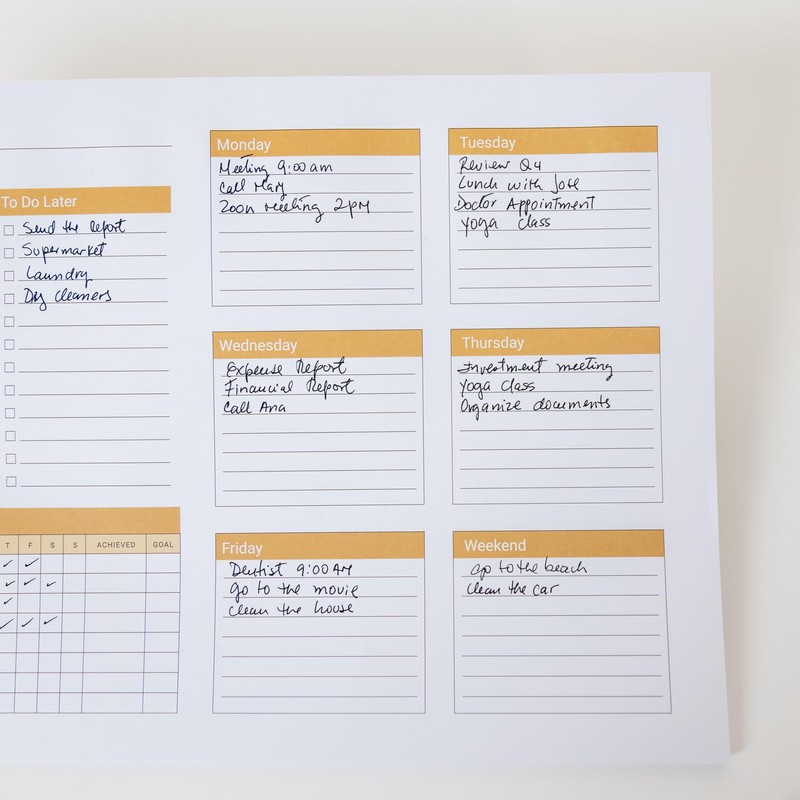 To Do Later
Send the report
Supermarket
Laundry
Dry cleaners
T F S S ACHIEVED GOAL
Monday
Meeting 9:00 am
Call Mary
Zoon meeting 2pm
Tuesday
Review Q4
Lunch with José
Doctor Appointment
Yoga class
Wednesday
Expense Report
Financial Report
Call Ana
Thursday
Investment meeting
Yoga Class
Organize documents
Friday
Dentist 9:00 AM
go to the movie
clean the house
Weekend
go to the beach
clean the car